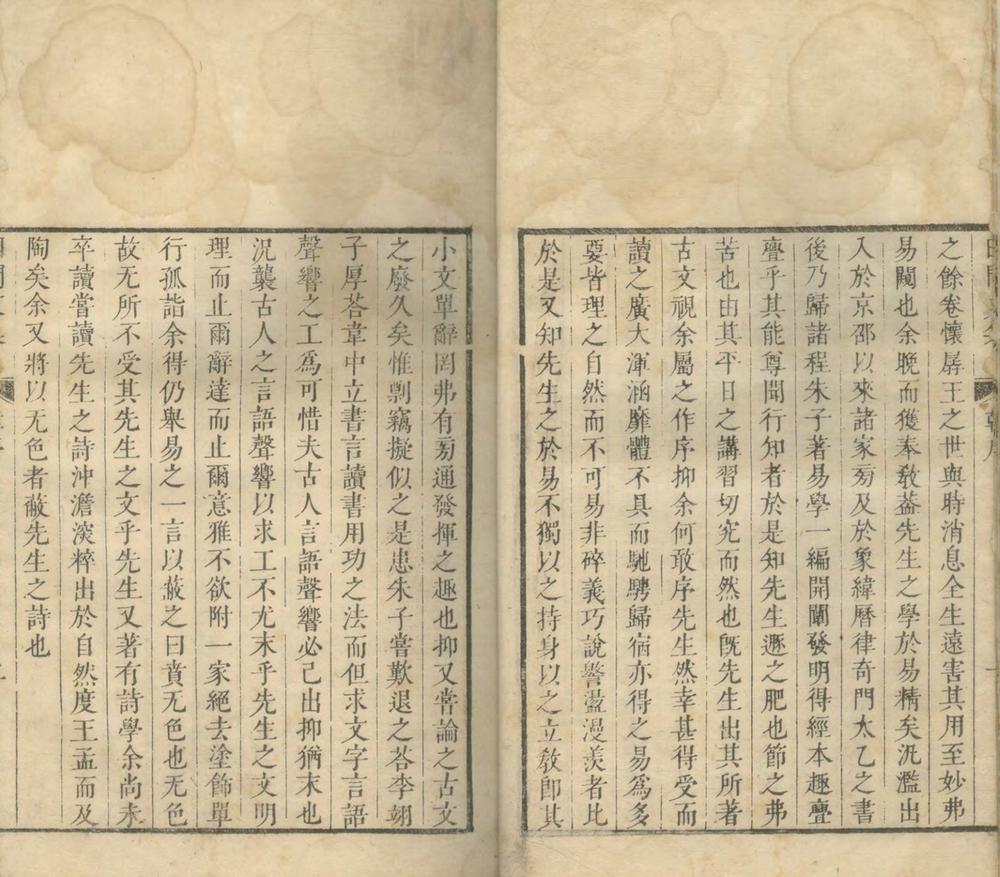 之餘卷懷孱王之世與時消息全生遠害其用至妙弗
易闚也余晚而獲奉敎葢先生之學於易精矣汎濫出
入於京邵以來諸家菊及於象緯曆律奇門太乙之書
後乃歸諸程朱子著易學一編開闡發明得經本趣亹
亹乎其能尊聞行知者於是知先生遯之肥也節之弗
苦也由其平日之講習切究而然也旣先生出其所著
古文視余屬之作序抑余何敢序先生然幸甚得受而
讀之廣大渾涵靡體不具而馳騁歸宿亦得之易爲多
要皆理之自然而不可易非碎義巧說譥瀣漫羡者比
於是又知先生之於易不獨以之持身以之立敎卽其
小文單辭罔弗有菊通發揮之趣也抑又嘗論之古文
之廢久矣惟剽竊擬似之是患朱子嘗歎退之荅李翊
子厚荅韋中立書言讀書用功之法而但求文字言語
聲響之工爲可惜夫古人言語聲響必己出抑猶末也
況襲古人之言語聲響以求工不尤末乎先生之文明
理而止爾辭達而止爾意雅不欲附一家絕去塗飾單
行孤詣余得仍舉易之一言以蔽之曰賁无色也无色
故无所不受其先生之文乎先生又著有詩學余尚未
卒讀嘗讀先生之詩沖澹淡粹出於自然度王孟而及
陶矣余又將以无色者蔽先生之詩也